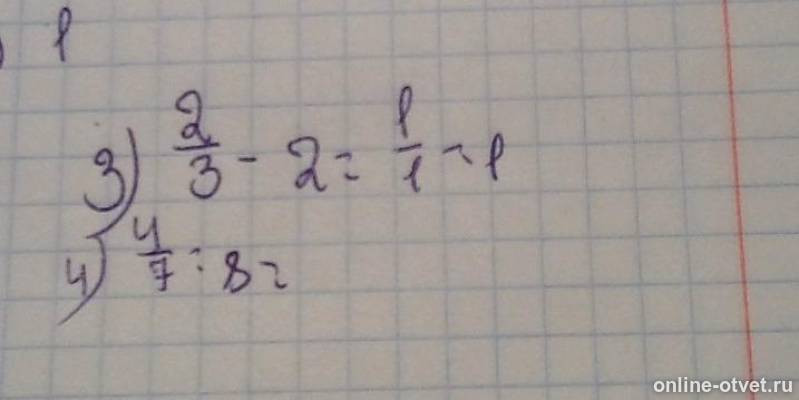 1
3) 2/3 - 2 = 1/1 = 1
4) 4/7 : 8 =
online-otvet.ru